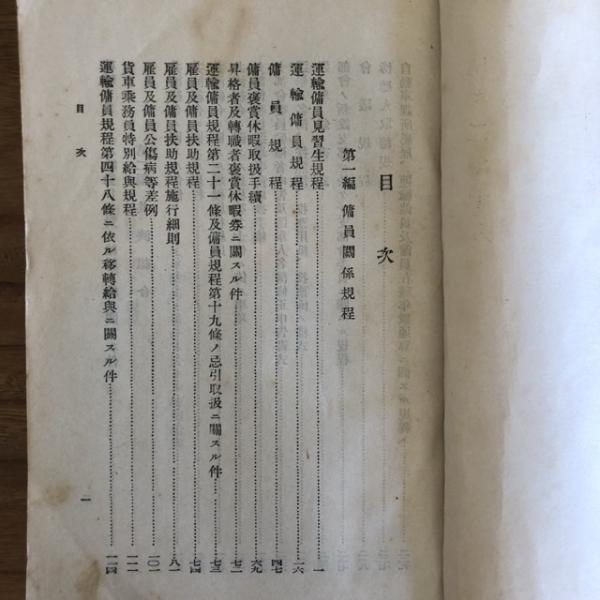 目次
第一編 傭員關係規程
運輸傭員見習生規程……一
運輸傭員規程……一六
傭員規程……四七
傭員褒賞休暇取扱手續……六九
昇格者及轉職者褒賞休暇券ニ關スル件……七二
運輸傭員規程第二十一條及傭員規程第十九條ノ忌引取扱ニ關スル件……七三
雇員及傭員扶助規程……七四
雇員及傭員扶助規程施行細則……八一
雇員及傭員公傷病等差例……一〇一
貨車乘務員特別給與規程……一一一
運輸傭員規程第四十八條ニ依ル移轉給與ニ關スル件……一二四
目次
一